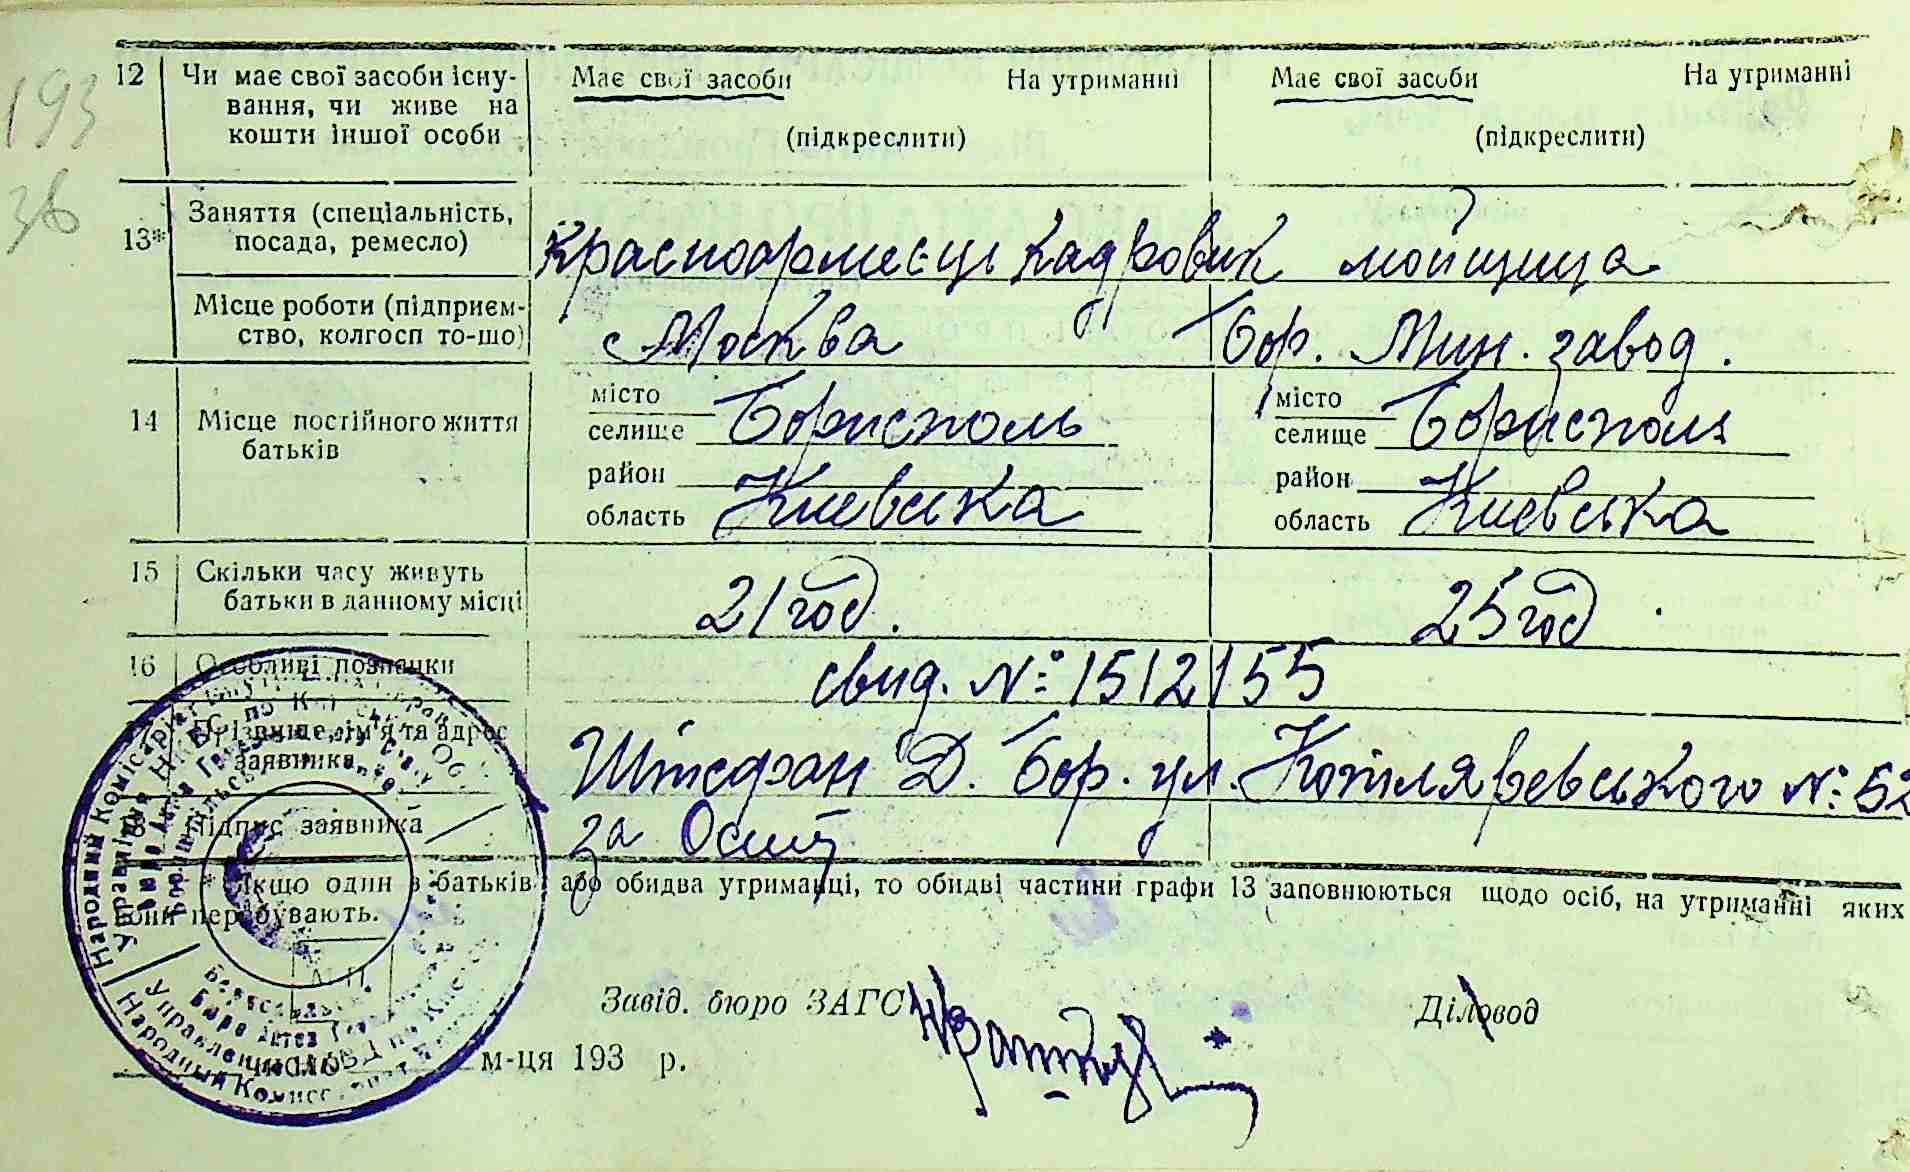 193
38
12 Чи має свої засоби існу- Має свої засоби На утриманні Має свої засоби На утриманні
вання, чи живе на
кошти іншої особи (підкреслити) (підкреслити)
13* Заняття (спеціальність,
посада, ремесло) Красноармеєць кадровик мойщица
Місце роботи (підприєм-
ство, колгосп то-що) Москва Бор. Мин. завод.
14 Місце постійного життя
батьків
місто місто
селище Бориспольь селище Борисполь
район район
область Киевська область Киевська
15 Скільки часу живуть
батьки в данному місці 21 год. 25 год
16 Особливі познанки свид. №: 1512155
17 Прізвище, ім'я та адрес
заявника Штефан Д. Бор. ул. Котляревського №: 52
18 Підпис заявника за Осип
* Якщо один з батьків або обидва утриманці, то обидві частини графи 13 заповнюються щодо осіб, на утриманні яких
вони перебувають.
М. П.
Завід. бюро ЗАГС Діловод
число м-ця 193 р.
Народний Комісаріат
Управління НКВС по
Бюро Актів
Бориспільське
Бюро Актов
Управление НКВД по Киевс
Народный Комисс